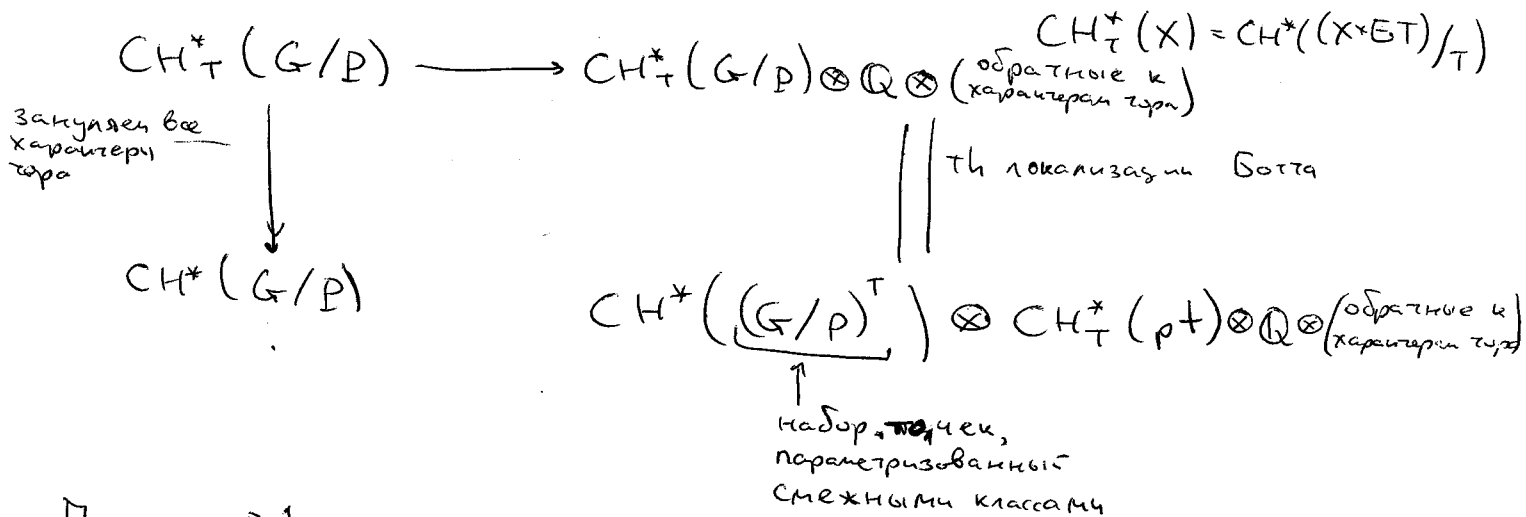 CH*_T (G/P) ⟶ CH*_T (G/P) ⊗ Q ⊗ (обратные к характерам тора)
CH*_T (X) = CH*((X×ET)/T)
зануляем все
характеры
тора
|| Th локализации Ботта
CH* (G/P)
CH* ((G/P)^T) ⊗ CH*_T (pt) ⊗ Q ⊗ (обратные к характерам тора)
↑
набор точек,
параметризованный
смежными классами